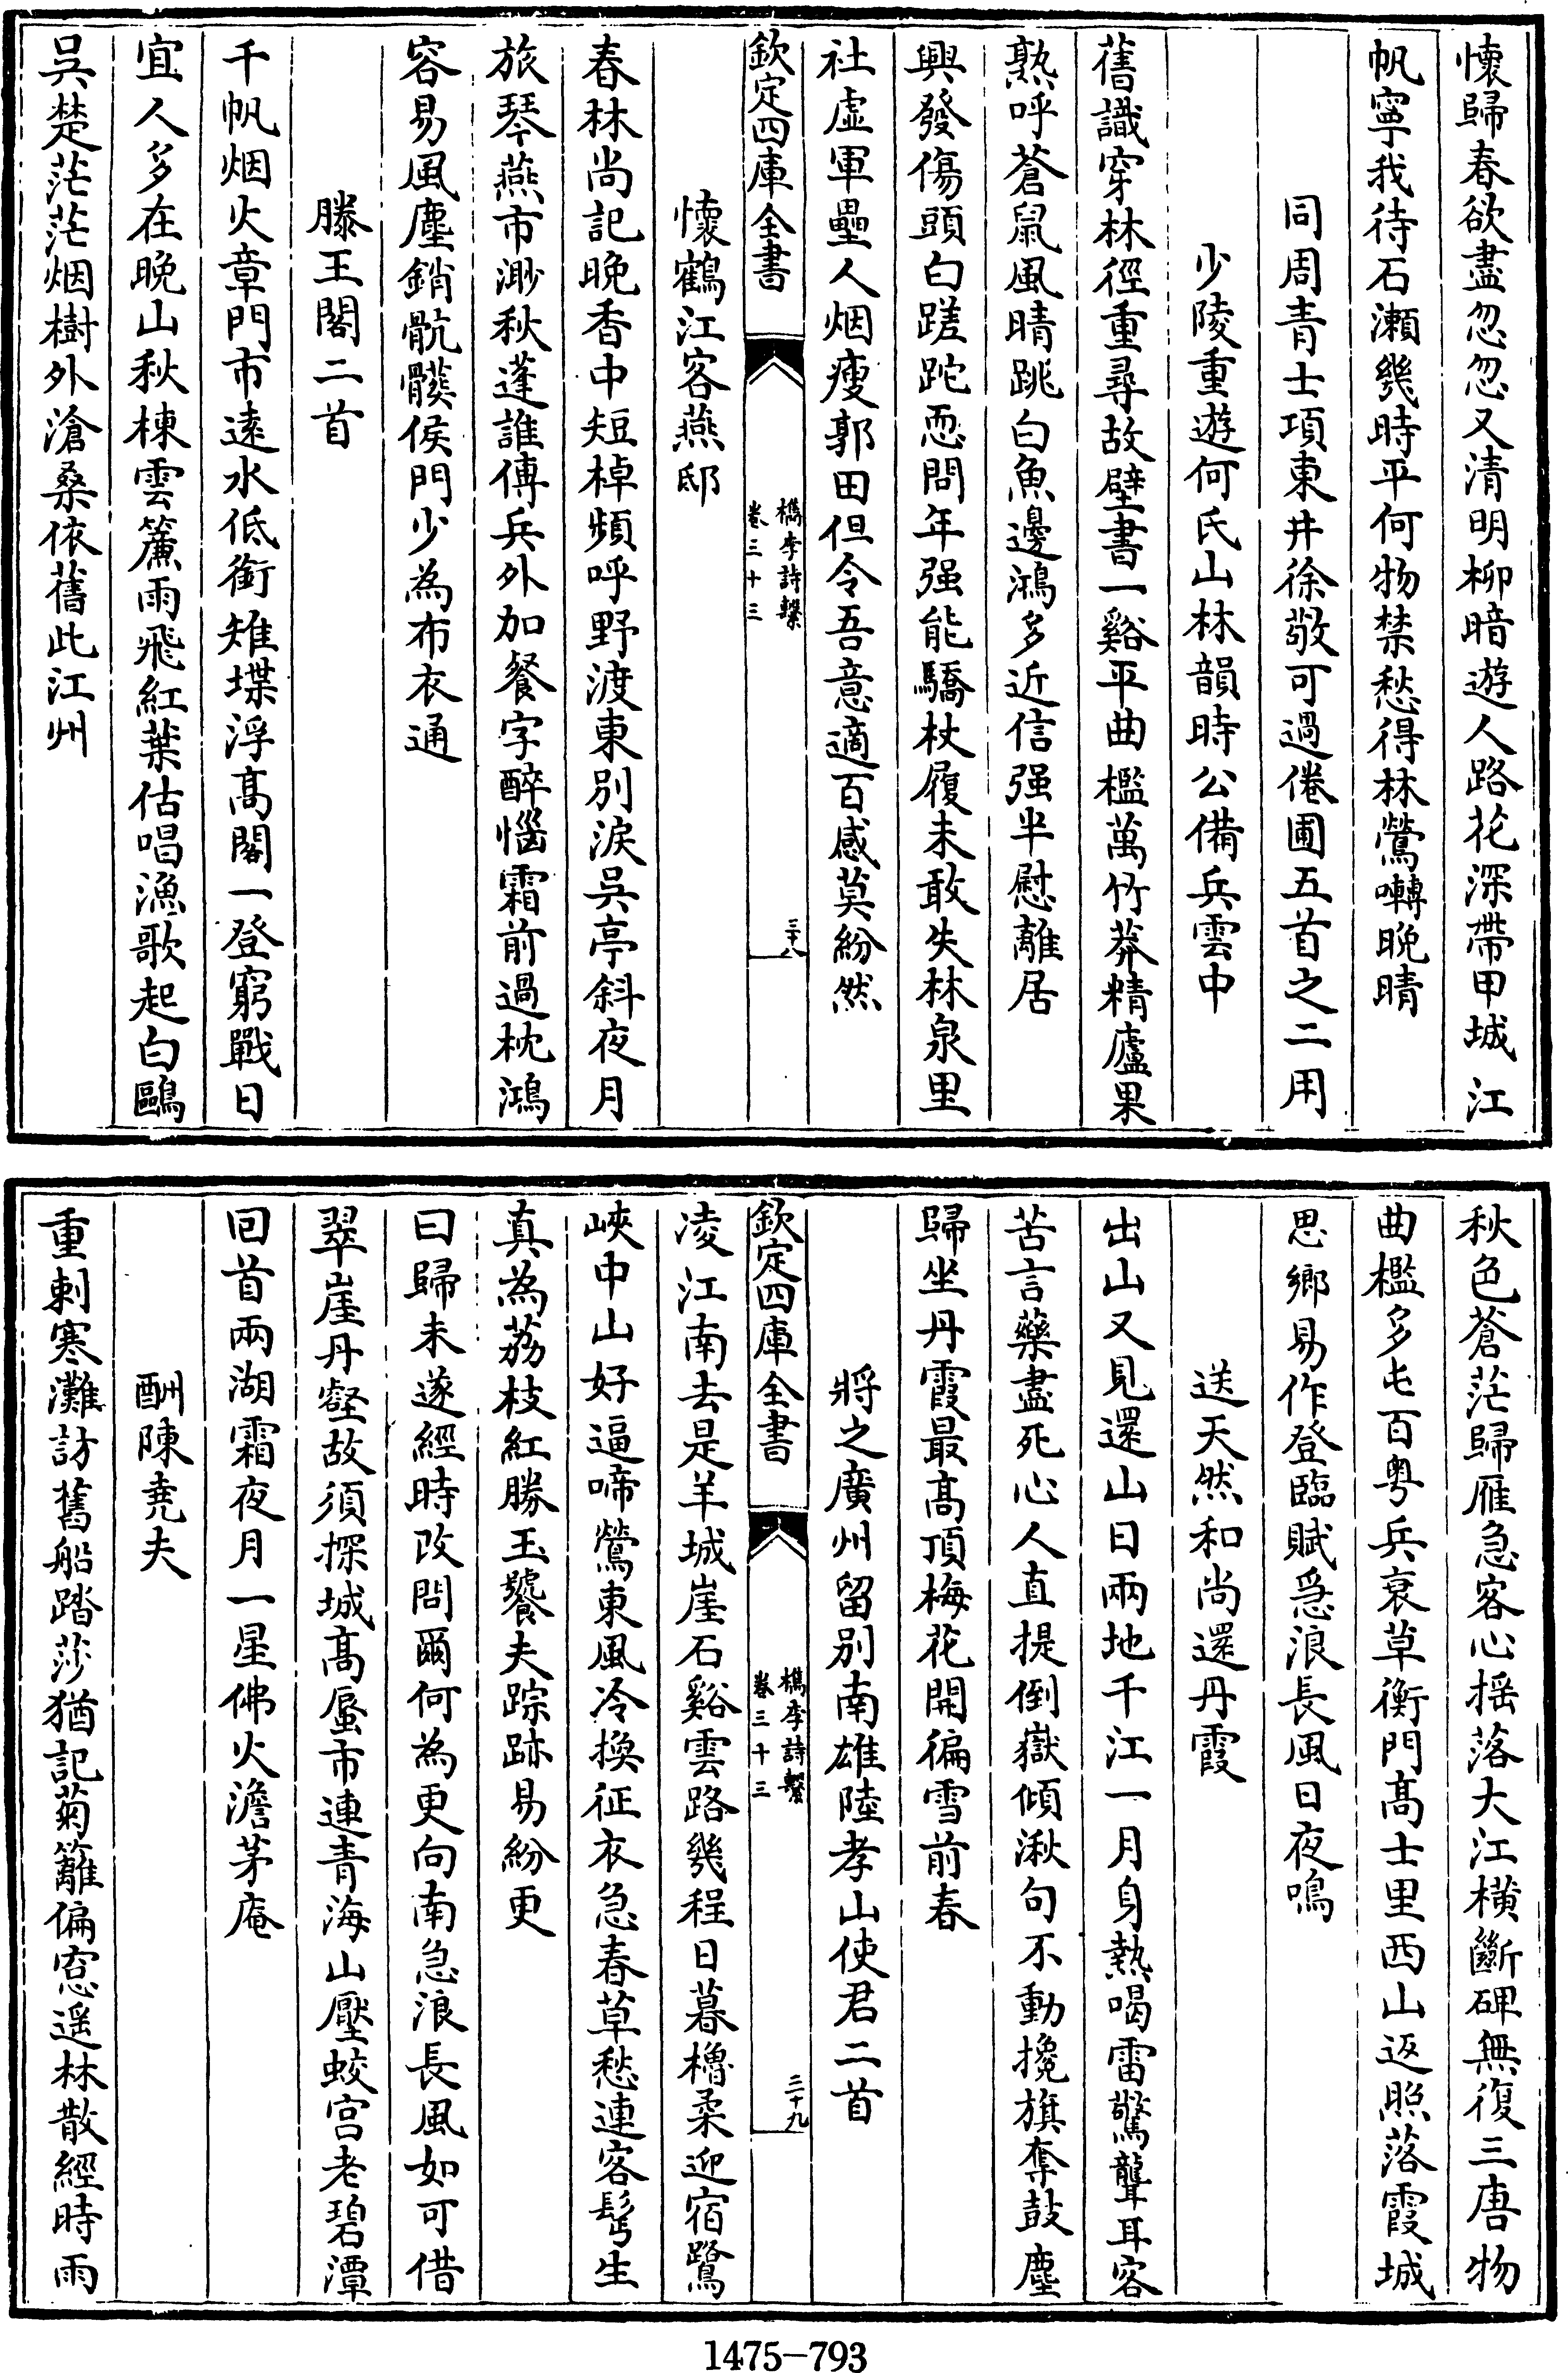 懷歸春欲盡忽忽又清明柳暗遊人路花深帶甲城江
帆寧我待石瀬幾時平何物禁愁得林鶯囀晚晴
同周青士項東井徐敬可過倦圃五首之二用
少陵重遊何氏山林韻時公備兵雲中
舊識穿林徑重尋故壁書一谿平曲檻萬竹莽精廬果
熟呼蒼鼠風晴跳白魚邊鴻多近信强半慰離居
興發傷頭白蹉跎恧問年强能驕杖履未敢失林泉里
社虛軍壘人烟瘦郭田但令吾意適百感莫紛然
欽定四庫全書
檇李詩繫
卷三十三
三十八
懷鶴江客燕邸
春林尚記晚香中短棹頻呼野渡東別淚吳亭斜夜月
旅琴燕市渺秋蓬誰傳兵外加餐字醉惱霜前過枕鴻
容易風塵銷骯髒侯門少為布衣通
滕王閣二首
千帆烟火章門市遠水低銜雉堞浮髙閣一登窮戰日
宜人多在晚山秋棟雲簾雨飛紅葉估唱漁歌起白鷗
吳楚茫茫烟樹外滄桑依舊此江州
秋色蒼茫歸雁急客心揺落大江橫斷碑無復三唐物
曲檻多屯百粤兵衰草衡門髙士里西山返照落霞城
思鄉易作登臨賦急浪長風日夜鳴
送天然和尚還丹霞
出山又見還山日兩地千江一月身熱喝雷驚聾耳客
苦言藥盡死心人直提倒嶽傾湫句不動攙旗奪鼓塵
歸坐丹霞最髙頂梅花開徧雪前春
將之廣州留別南雄陸孝山使君二首
凌江南去是羊城崖石谿雲路幾程日暮櫓柔迎宿鷺
峽中山好逼啼鶯東風冷換征衣急春草愁連客鬢生
真為荔枝紅勝玉饕夫踪跡易紛更
曰歸未遂經時改問爾何為更向南急浪長風如可借
翠崖丹壑故須探城髙蜃市連青海山壓蛟宫老碧潭
囘首兩湖霜夜月一星佛火澹茅庵
酬陳堯夫
重刺寒灘訪舊船踏莎猶記菊籬偏窓遥林散經時雨
欽定四庫全書
檇李詩繫
卷三十三
三十九
1475-793